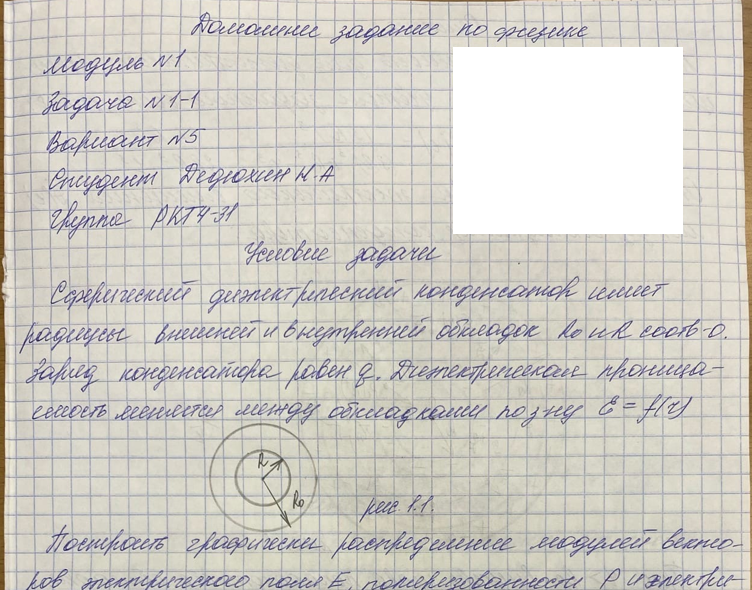 Домашнее задание по физике
Модуль №1
Задача №1-1
Вариант №5
Студент Дедюхин Н.А
Группа РКТ4-31
Условие задачи
Сферический диэлектрический конденсатор имеет
радиусы внешней и внутренней обкладок R₀ и R соотв-о.
Заряд конденсатора равен q. Диэлектрическая проница-
емость меняется между обкладками по з-ну ε = f(r)
R
R₀
рис 1.1.
Построить графически распределение модулей векто-
ров электрического поля E, поляризованности P и электри-